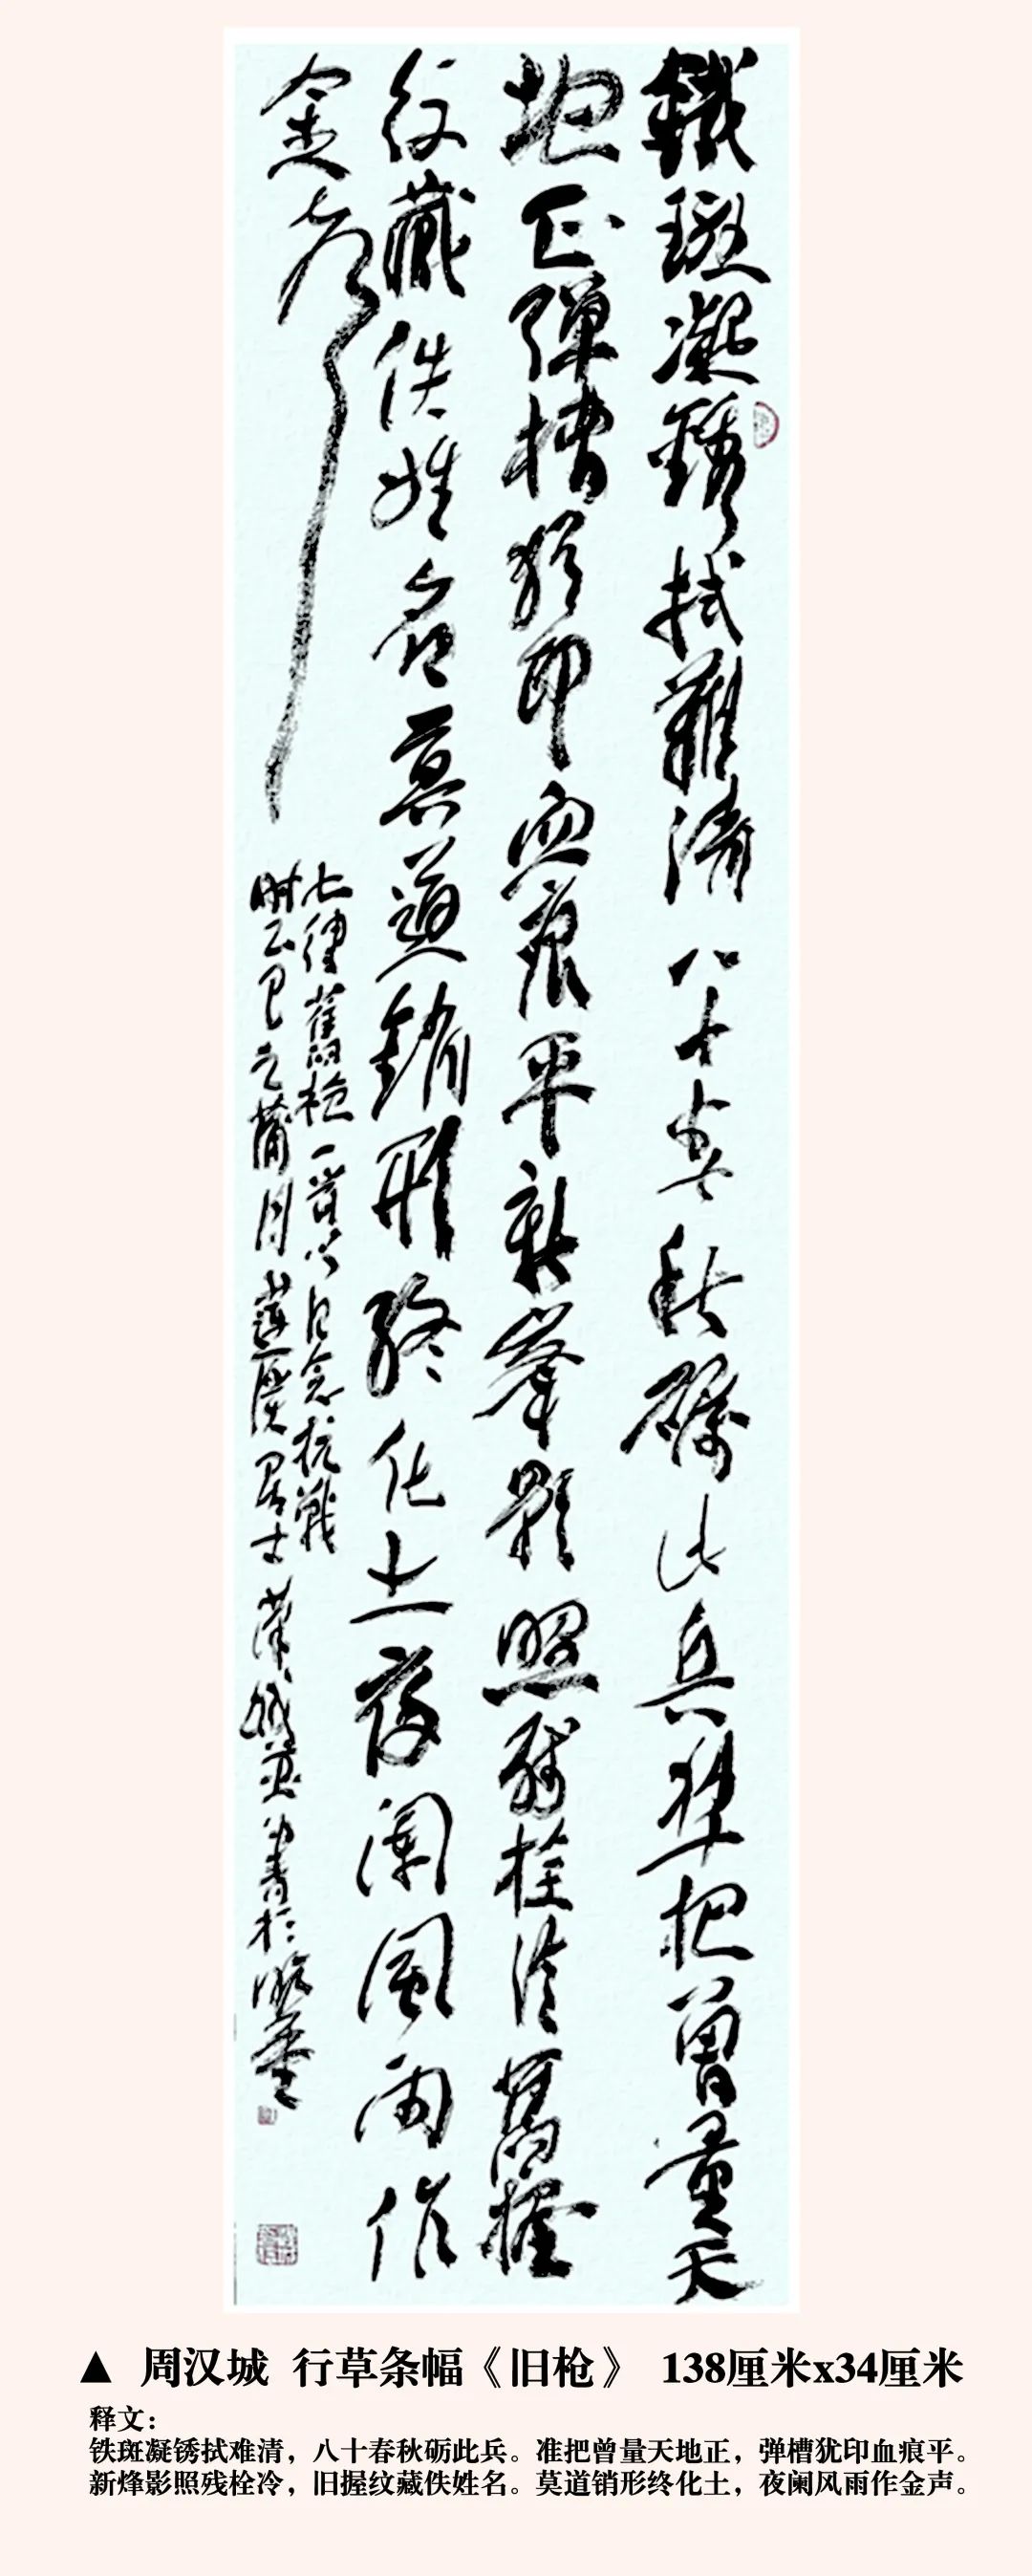 鐵斑凝銹拭難清八十春秋礪此兵準把曾量天
地正彈槽猶印血痕平新烽影照殘栓冷舊握
紋藏佚姓名莫道銷形終化土夜闌風雨作
金聲
七律舊槍一首以紀念抗戰
時乙巳之蒲月蓮廬居士漢城並書於
▲ 周汉城 行草条幅《旧枪》 138厘米x34厘米
释文：
铁斑凝锈拭难清，八十春秋砺此兵。准把曾量天地正，弹槽犹印血痕平。
新烽影照残栓冷，旧握纹藏佚姓名。莫道销形终化土，夜阑风雨作金声。